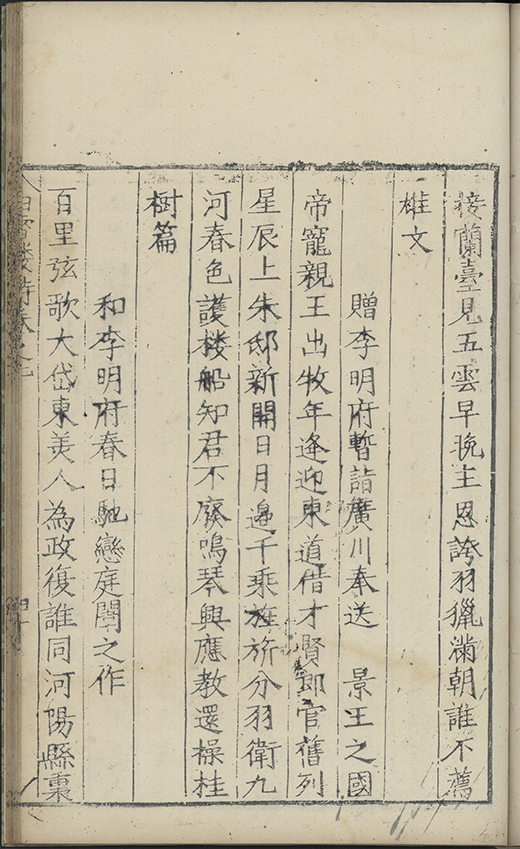 接蘭臺見五雲早晚主恩誇羽獵滿朝誰不薦
雄文
贈李明府暫詣廣川奉送　景王之國
帝寵親王出牧年逢迎東道借才賢郎官舊列
星辰上朱邸新開日月邉千乘旌旂分羽衛九
河春色護楼船知君不廢鳴琴興應教還操桂
樹篇
和李明府春日馳戀庭闈之作
百里弦歌大岱東美人為政復誰同河陽縣裏
白雪楼詩卷之